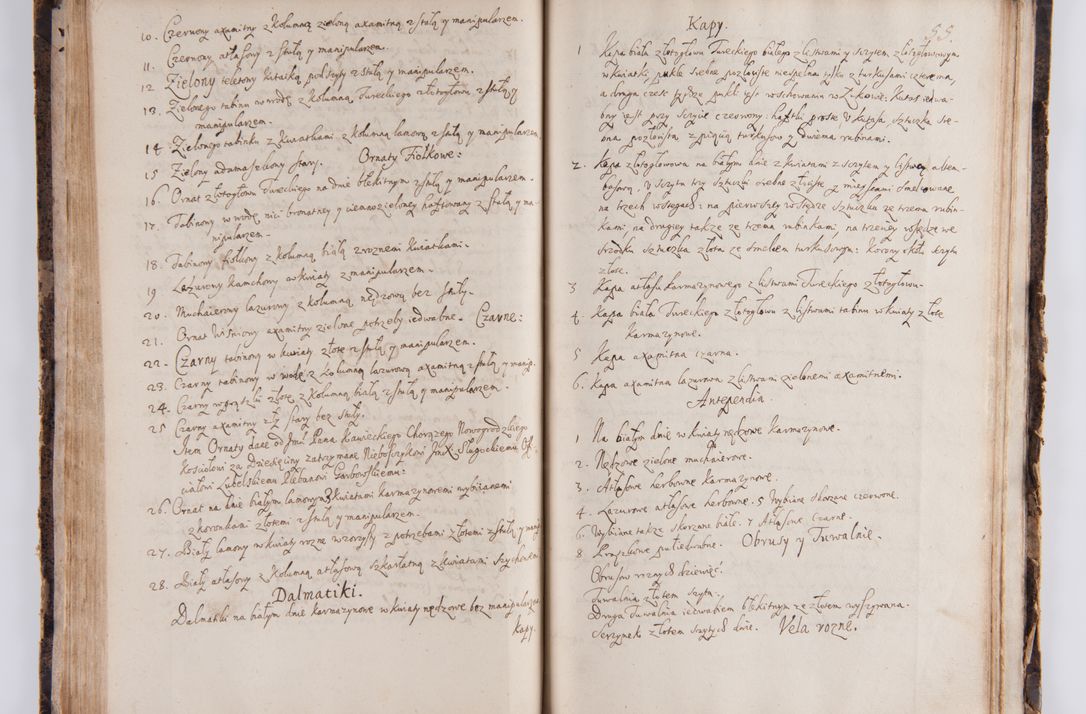 10. Czerwony axamitny z kolumną zieloną axamitną z stułą y manipularzem.
11. Czerwony atłasowy z stułą y manipularzem.
12 Zielony teletowy kitaiką podszyty z stułą y manipularzem.
13. Zielonego tabinu w wodę z kolumną Tureckiego złotogłowu z stułą y
manipularzem.
14. Zielonego tabinku z kwiatkami z kolumną lamową z stułą y manipularzem
15 Zielony adamaszkowy stary. Ornaty Fiołkowe:
16. Ornat złotogłowu Tureckiego na dnie błękitnym z stułą y manipularzem.
17. Tabinowy w wodę nici brunatney y ciemnozieloney haftowany z stułą y ma-
nipularzem.
18. Tabinowy fiołkowy z kolumną białą z roznemi kwiatkami.
19 Lazurowy kamchowy w kwiaty z manipularzem.
20. Muchaierowy lazurowy z kolumną nędzową bez stuły.
21. Ornat Wiśniowy axamitny zielone potrzeby iedwabne. Czarne:
22. Czarny tabinowy w kwiaty złote z stułą y manipularzem.
23. Czarny tabinowy w wodę z kolumną lazurową axamitną z stułą y manip.
24. Czarny w prążki złote z kolumną białą z stułą y manipularzem.
25 Czarny axamitny zły stary bez stuły.
Item Ornaty dane od Jmci Pana Kawieckiego Chorążego Nowogrodzkiego
kościołowi za Dziesięciny zatrzymane Nieboszczykowi Jmx. Sługockiemu Of-
ficiałowi Lubelskiemu Plebanowi Garbowskiemu:
26. Ornat na dnie białym lamowym z kwiatami karmazynowemi wybiianemi
z koronkami złotemi z stułą y manipularzem.
27. Biały lamowy w kwiaty rozne wzorzysty z potrzebami złotemi z stułą y manip
28. Biały atłasowy z kolumną atłasową szkarłatną z kwiatami szychowemi
Dalmatiki.
Dalmatiki na białym dnie karmazynowe w kwiaty nędzowe bez manipularzow
Kapy.
Kapy.
55.
1 Kapa biała złotogłowu Tureckiego białego z listwami y szczytem złotogłowowym
w kwiatki, pukle srebne pozłociste niezpełna tylko z turkusami czterema,
a druga częsc tyysze pukli iest w schowaniu w Zinkowie: Kutas iedwa-
bny iest przy szczycie czerwony: haftki proste V kutasa sztuczka sre-
bna pozłocista z piącią turkusow y dwiema rubinami.
2. Kapa złotogłowowa na białym dnie z kwiatami z szczytem y listwą altem-
basową, V szczytu trzy sztuczki srebne złociste y mieyscami smelcowane
na trzech wstęgach: na pierwszey wstędze sztuczka ze trzema rubin-
kami, na drugiey także ze trzema rubinkami, na trzeciey wstędze we
srzodku sztuczka złota ze smelcem turkusowym: Korony około szczytu
złote.
3 Kapa atłasu karmazynowego z listwami Tureckiego złotogłowu.
4. Kapa biała Tureckiego złotogłowu z listwami tabinu w kwiaty złote
karmazynowe.
5 Kapa axamitna czarna.
6. Kapa axamitna lazurowa z listwami zielonemi axamitnemi.
Antependia.
1 Na białym dnie w kwiaty nędzowe karmazynowe.
2. Nędzowe zielone muchaierowe.
3. Atłasowe herbowne karmazynowe.
4. Lazurowe atłasowe herbowne. 5 Wybiiane skorzane czerwone.
6. Wybiiane także skorzane białe. 7 Atłasowe czarne.
8 Proszkowe pstre. Obrusy y Tuwalnie.
Obrusow rznych dziewięć.
Tuwalnia złotem szyta.
Druga Tuwalnia iedwabiem błekitnym ze złotem wyszywana.
Serzynek złotem szytych dwie. Vela rozne.